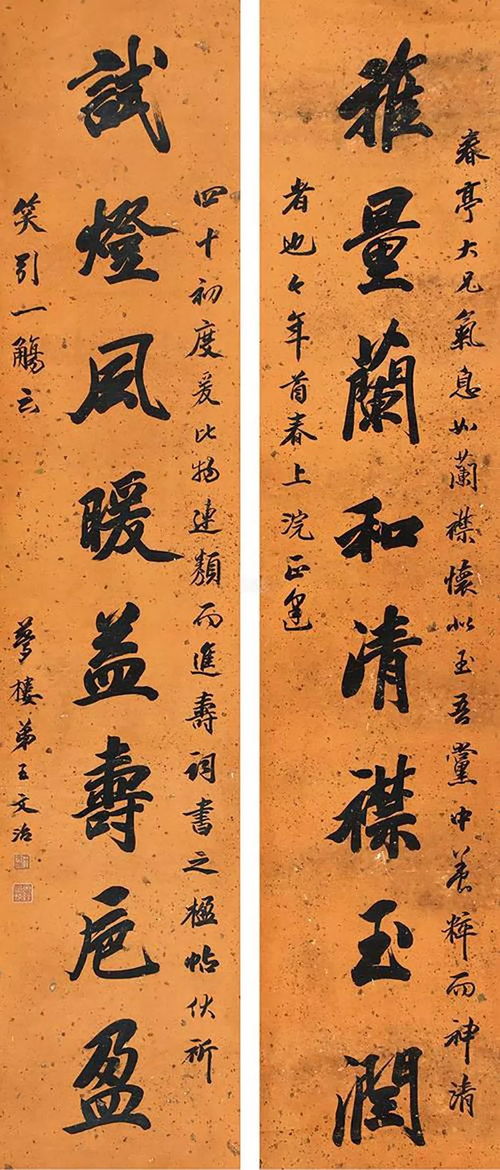 春亭大兄氣息如蘭襟懷似玉吾黨中養粹而神清
雅量蘭和清襟玉潤
者也今年首春上浣正逢
四十初度爰比物連類而進壽詞書之楹帖伏祈
試燈風暖益壽卮盈
笑引一觴云 夢樓弟王文治